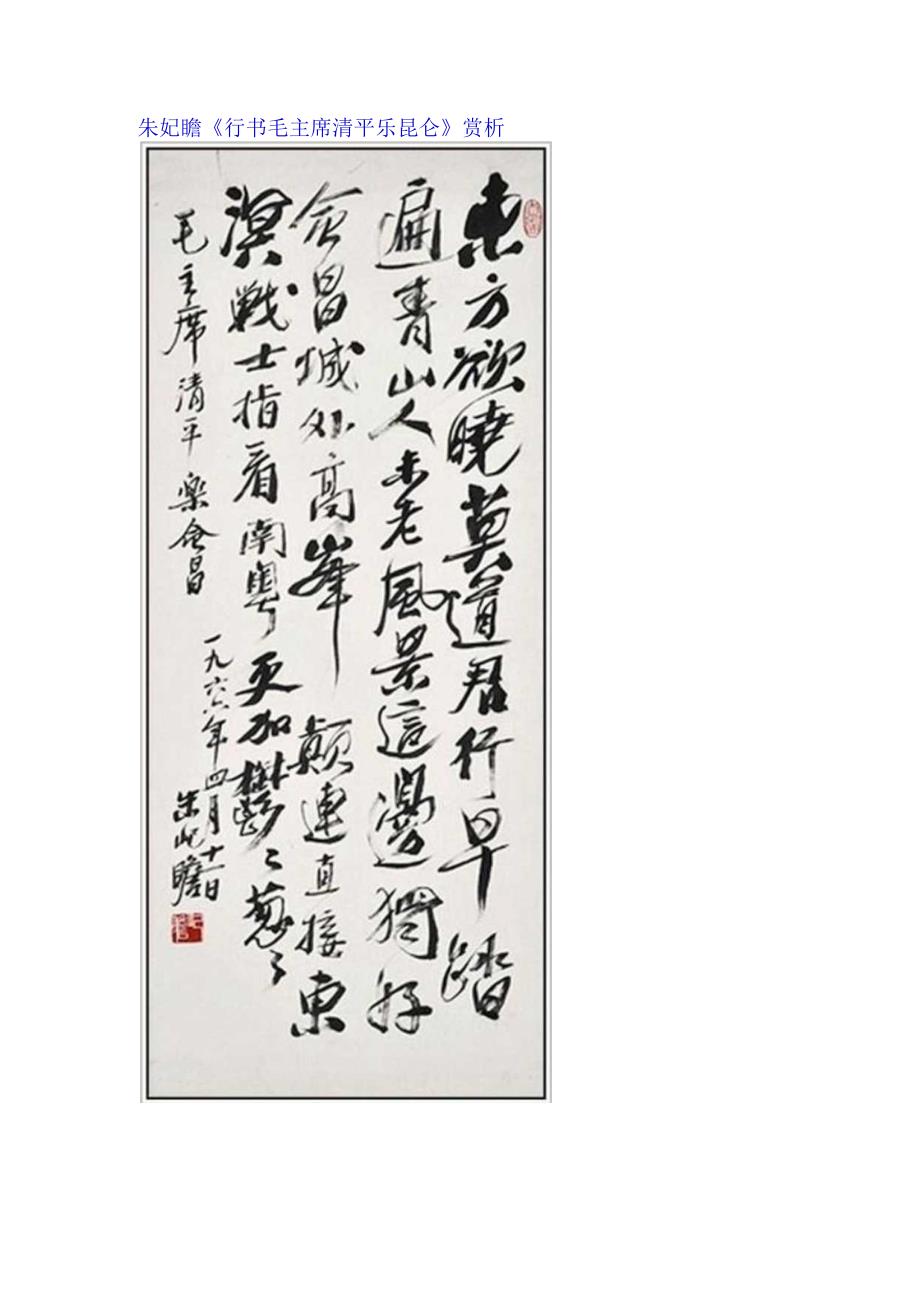 朱妃瞻《行书毛主席清平乐昆仑》赏析
東方欲曉莫道君行早踏
遍青山人未老風景這邊獨好
会昌城外高峯顛連直接東
溟戰士指看南粤更加鬱々葱々
毛主席清平樂会昌
一九六六年四月十一日
朱屺瞻